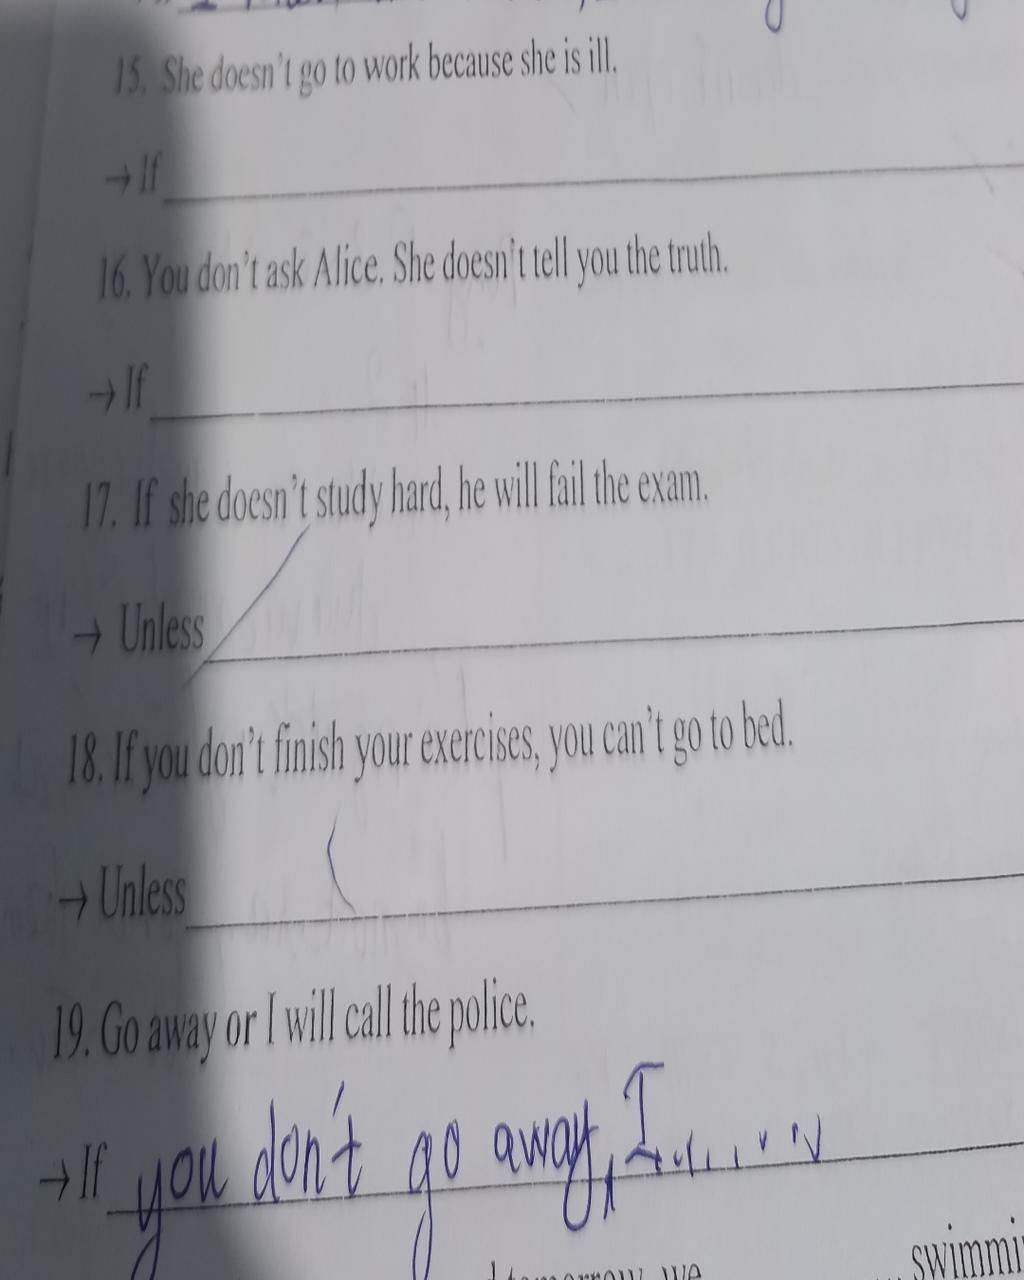 15. She doesn't go to work because she is ill.
→ If
16. You don't ask Alice. She doesn't tell you the truth.
→ If
17. If she doesn't study hard, he will fail the exam.
→ Unless
18. If you don't finish your exercises, you can't go to bed.
→ Unless
19. Go away or I will call the police.
→ If you don't go away, I
tomorrow, we swimmi